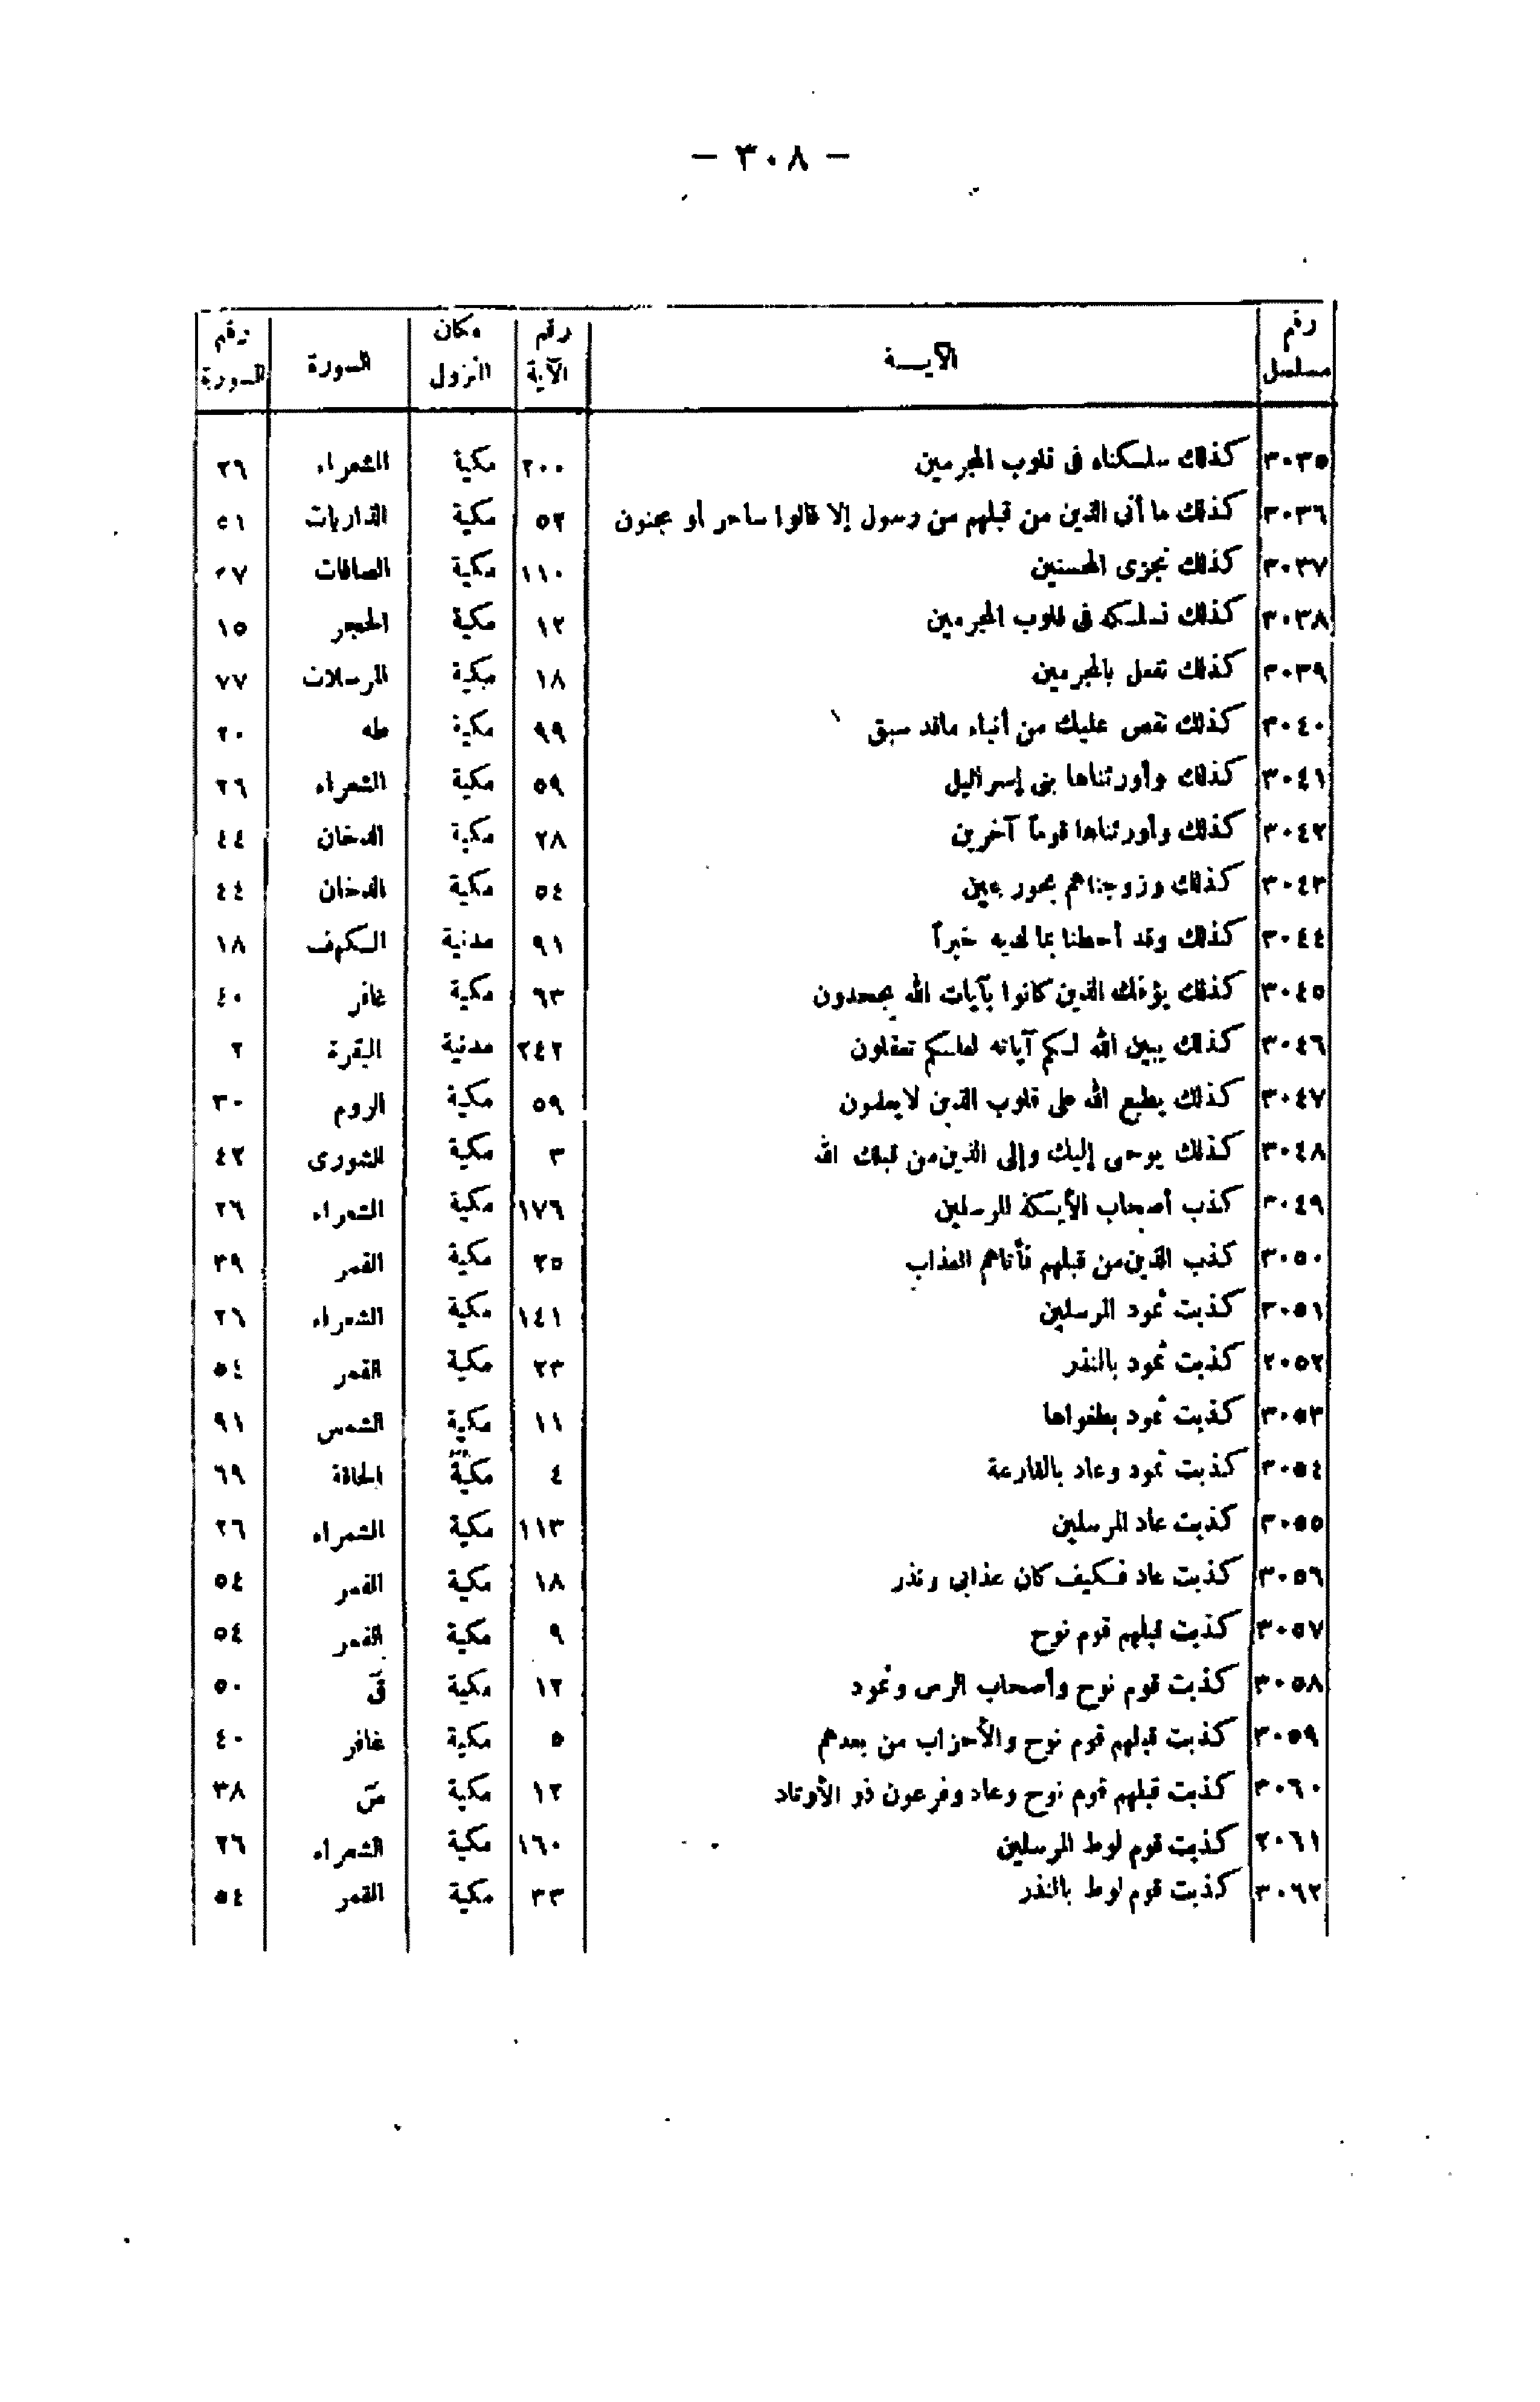 — ٣٠٨ —
رقم مسلسل الآيـــة رقم الآية مكان النزول السورة رقم السورة
٣٠٣٥ كذلك سلسكناه فى قلوب المجرمين ٢٠٠ مكية الشعراء ٢٦
٣٠٣٦ كذلك ما أتى الذين من قبلهم من رسول إلا قالوا ساحر أو مجنون ٥٢ مكية الذاريات ٥١
٣٠٣٧ كذلك نجزى المحسنين ١١٠ مكية الصافات ٣٧
٣٠٣٨ كذلك نسلسكه فى قلوب المجرمين ١٢ مكية الحجر ١٥
٣٠٣٩ كذلك نفعل بالمجرمين ١٨ مكية المرسلات ٧٧
٣٠٤٠ كذلك نقص عليك من أنباء ماقد سبق ٩٩ مكية طه ٢٠
٣٠٤١ كذلك وأورثناها بنى إسرائيل ٥٩ مكية الشعراء ٢٦
٣٠٤٢ كذلك وأورثناها قوماً آخرين ٢٨ مكية الدخان ٤٤
٣٠٤٣ كذلك وزوجناهم بحور عين ٥٤ مكية الدخان ٤٤
٣٠٤٤ كذلك وقد أحطنا بما لديه خبراً ٩١ مدنية الكهف ١٨
٣٠٤٥ كذلك يؤفك الذين كانوا بآيات الله يجحدون ٦٣ مكية غافر ٤٠
٣٠٤٦ كذلك يبين الله لكم آياته لعلكم تعقلون ٢٤٢ مدنية البقرة ٢
٣٠٤٧ كذلك يطبع الله على قلوب الذين لا يعلمون ٥٩ مكية الروم ٣٠
٣٠٤٨ كذلك يوحى إليك وإلى الذين من قبلك الله ٣ مكية الشورى ٤٢
٣٠٤٩ كذب أصحاب الأيكة المرسلين ١٧٦ مكية الشعراء ٢٦
٣٠٥٠ كذب الذين من قبلهم فأتاهم العذاب ٢٥ مكية القمر ٣٩
٣٠٥١ كذبت ثمود المرسلين ١٤١ مكية الشعراء ٢٦
٢٠٥٢ كذبت ثمود بالنذر ٢٣ مكية القمر ٥٤
٣٠٥٣ كذبت ثمود بطغواها ١١ مكية الشمس ٩١
٣٠٥٤ كذبت ثمود وعاد بالقارعة ٤ مكية الحاقة ٦٩
٣٠٥٥ كذبت عاد المرسلين ١١٣ مكية الشعراء ٢٦
٣٠٥٦ كذبت عاد فكيف كان عذابى ونذر ١٨ مكية القمر ٥٤
٣٠٥٧ كذبت قبلهم قوم نوح ٩ مكية القمر ٥٤
٣٠٥٨ كذبت قوم نوح وأصحاب الرس وثمود ١٢ مكية قٓ ٥٠
٣٠٥٩ كذبت قبلهم قوم نوح والأحزاب من بعدهم ٥ مكية غافر ٤٠
٣٠٦٠ كذبت قبلهم قوم نوح وعاد وفرعون ذو الأوتاد ١٢ مكية صٓ ٣٨
٢٠٦١ كذبت قوم لوط المرسلين ١٦٠ مكية الشعراء ٢٦
٣٠٦٢ كذبت قوم لوط بالنذر ٣٣ مكية القمر ٥٤